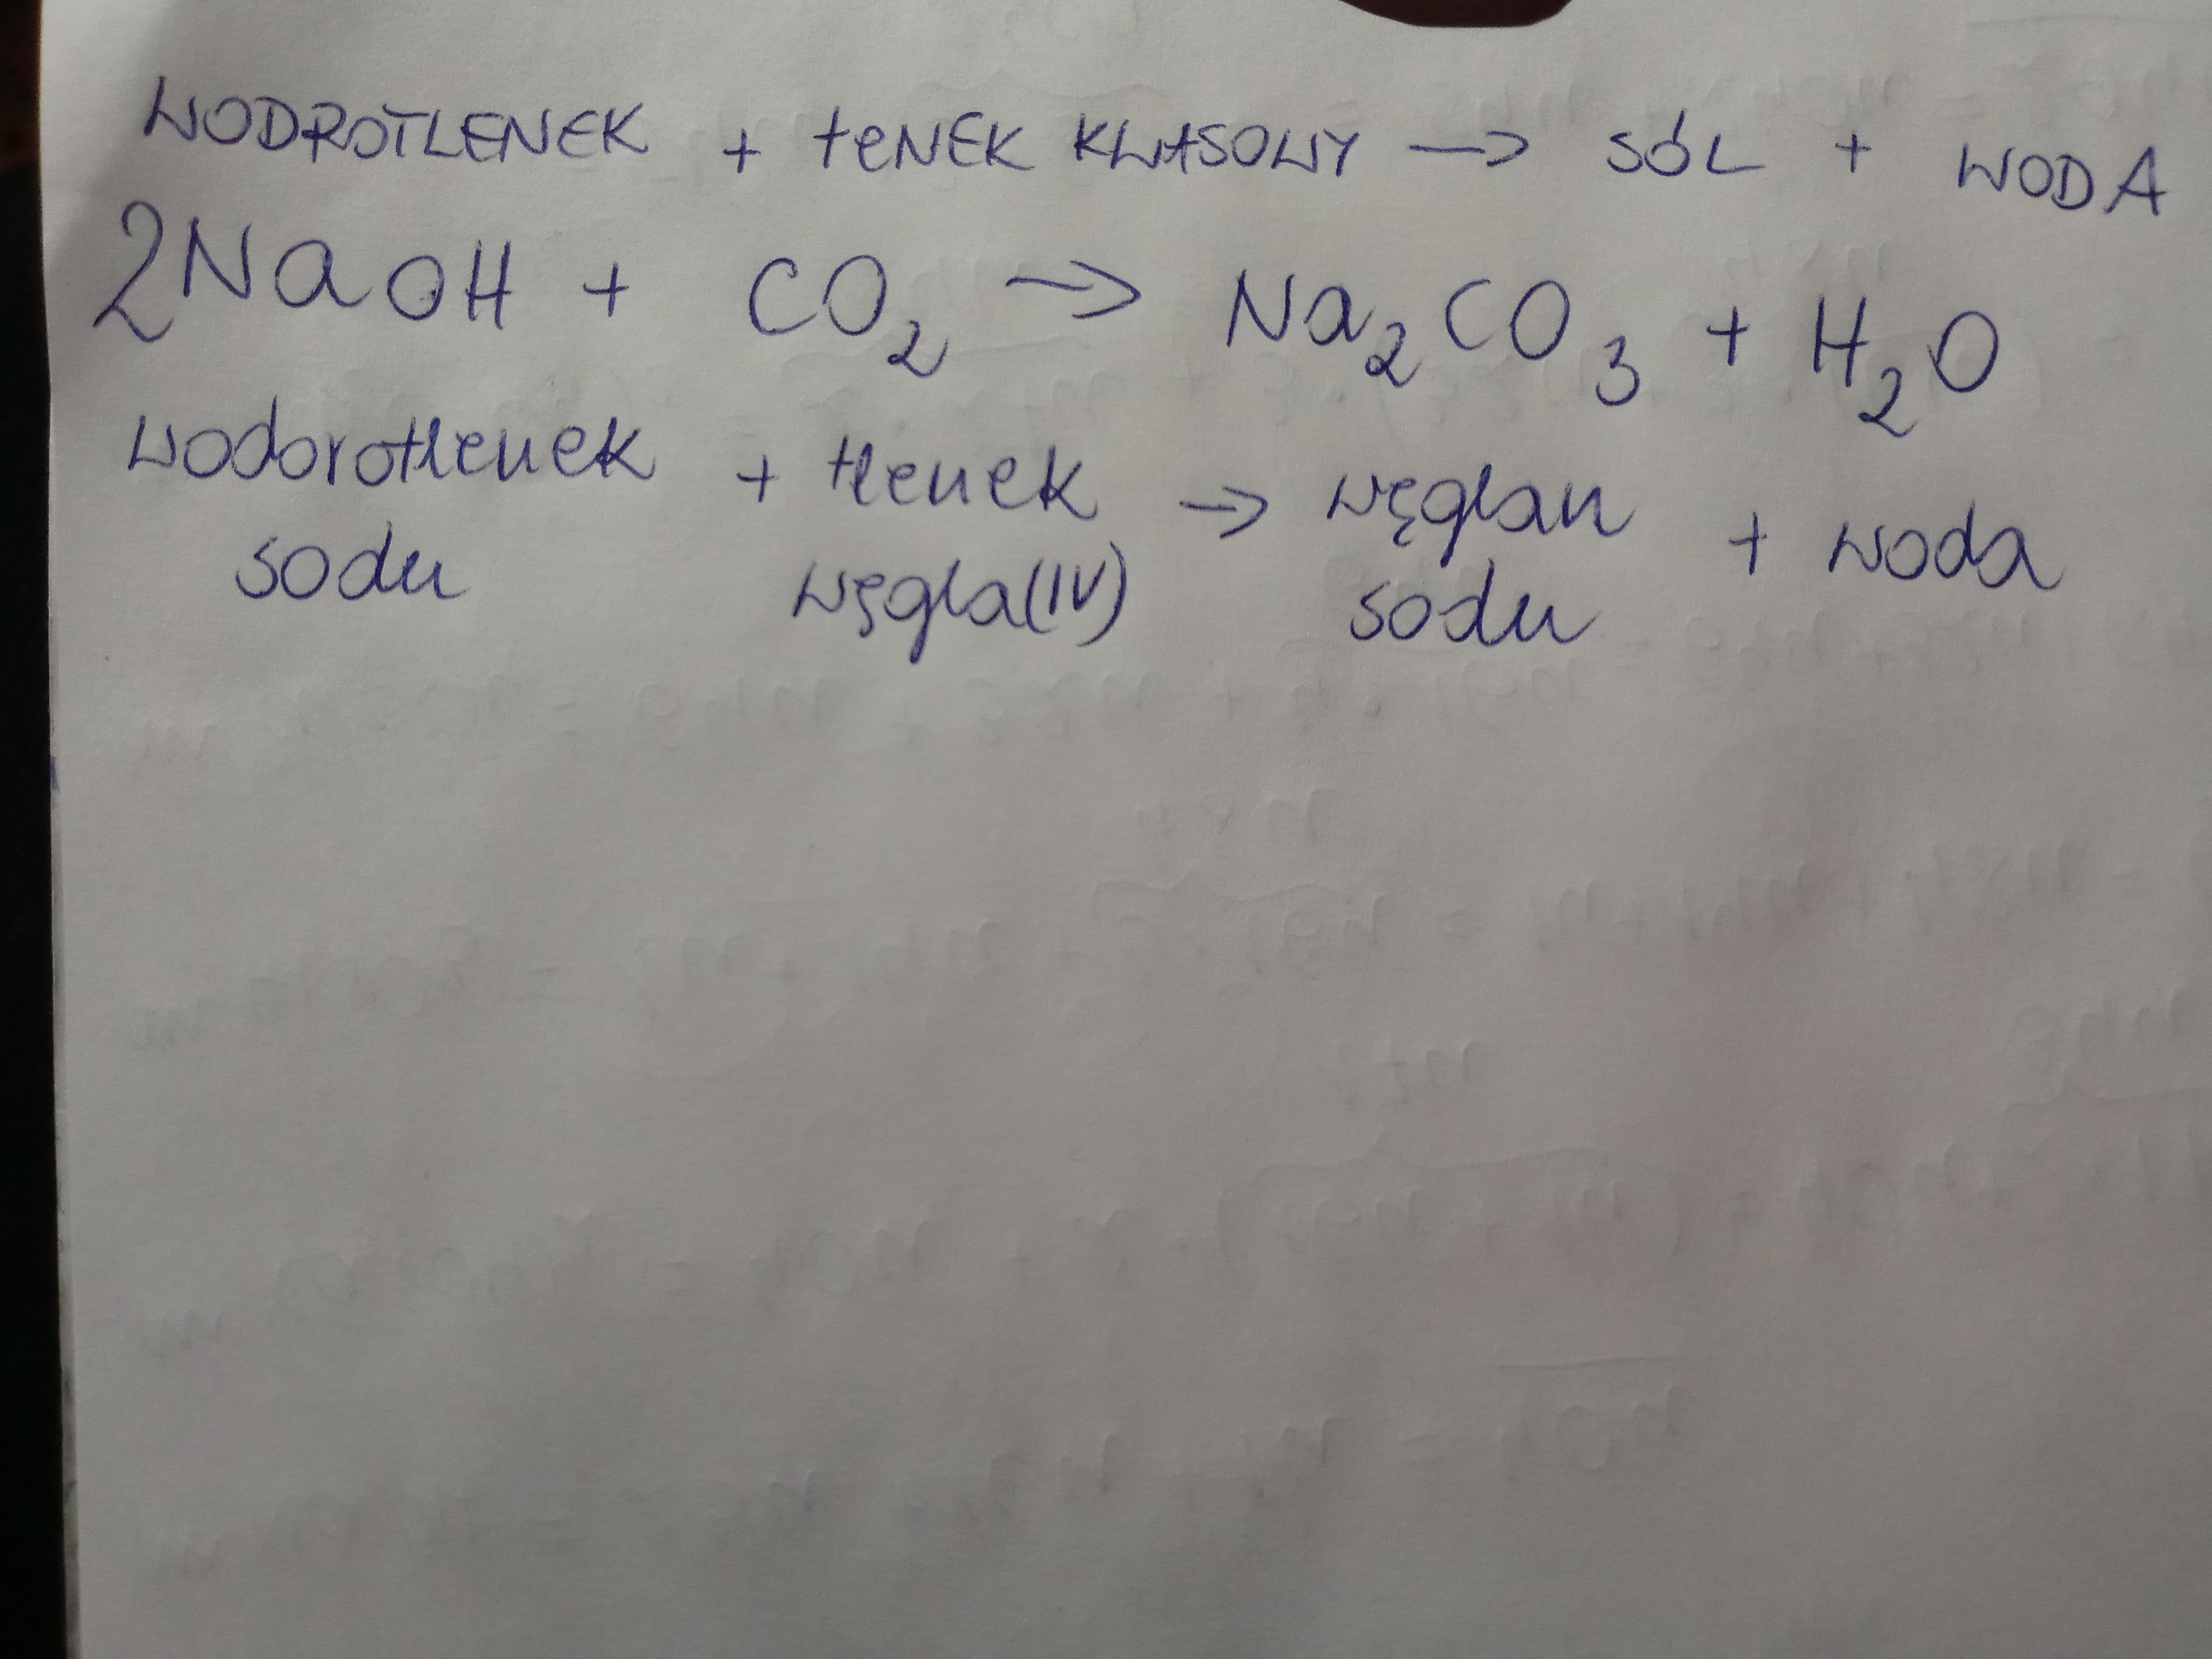 WODROTLENEK + tENEK KWASOWY → SÓL + WODA
2NaOH + CO₂ → Na₂CO₃ + H₂O
wodorotlenek + tlenek → węglan + woda
sodu węgla(IV) sodu